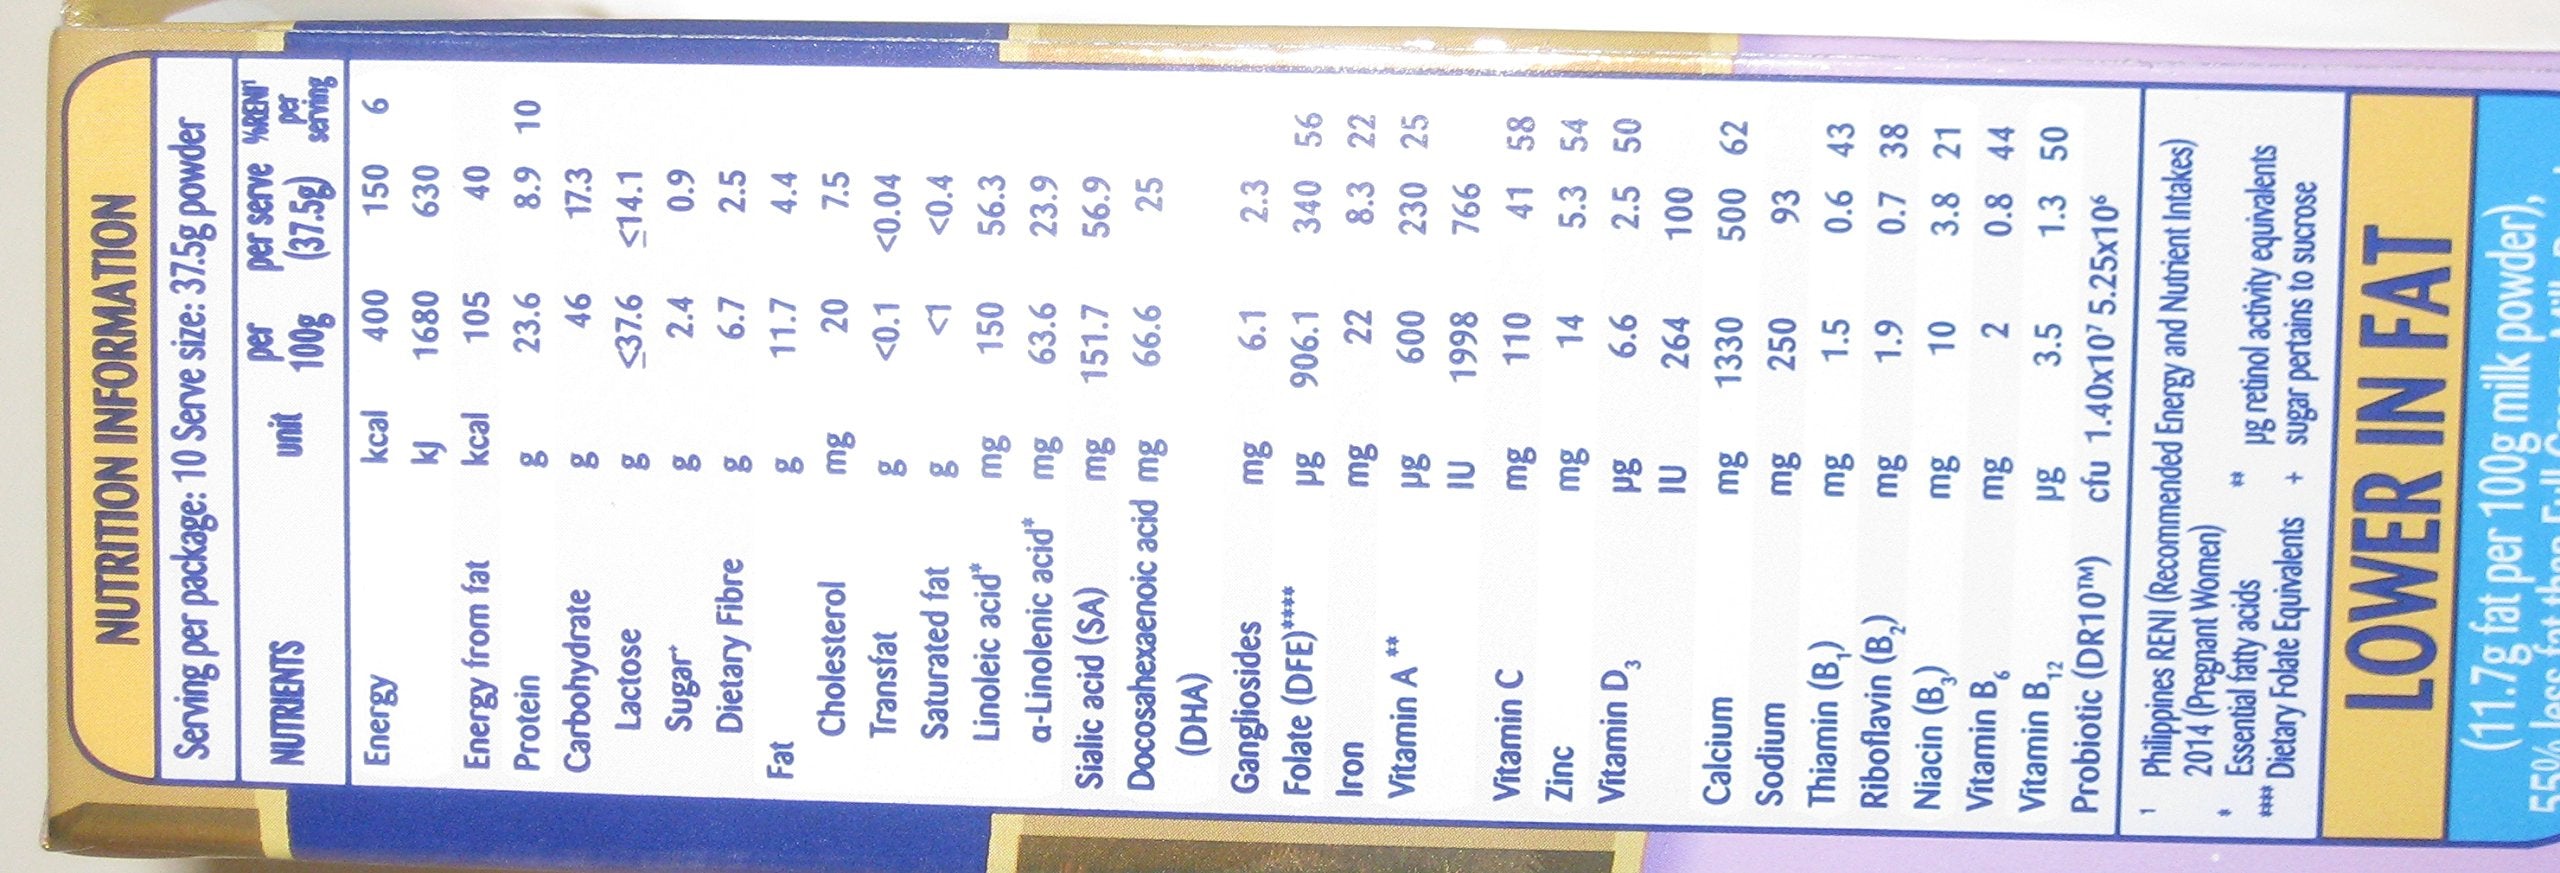 NUTRITION INFORMATION
Serving per package: 10 Serve size: 37.5g powder
NUTRIENTS unit per 100g per serve (37.5g) %RENI¹ per serving
Energy kcal 400 150 6
kJ 1680 630
Energy from fat kcal 105 40
Protein g 23.6 8.9 10
Carbohydrate g 46 17.3
Lactose g ≤37.6 ≤14.1
Sugar⁺ g 2.4 0.9
Dietary Fibre g 6.7 2.5
Fat g 11.7 4.4
Cholesterol mg 20 7.5
Transfat g <0.1 <0.04
Saturated fat g <1 <0.4
Linoleic acid* mg 150 56.3
α-Linolenic acid* mg 63.6 23.9
Sialic acid (SA) mg 151.7 56.9
Docosahexaenoic acid mg 66.6 25
(DHA)
Gangliosides mg 6.1 2.3
Folate (DFE)**** µg 906.1 340 56
Iron mg 22 8.3 22
Vitamin A ** µg 600 230 25
IU 1998 766
Vitamin C mg 110 41 58
Zinc mg 14 5.3 54
Vitamin D₃ µg 6.6 2.5 50
IU 264 100
Calcium mg 1330 500 62
Sodium mg 250 93
Thiamin (B₁) mg 1.5 0.6 43
Riboflavin (B₂) mg 1.9 0.7 38
Niacin (B₃) mg 10 3.8 21
Vitamin B₆ mg 2 0.8 44
Vitamin B₁₂ µg 3.5 1.3 50
Probiotic (DR10™) cfu 1.40x10⁷ 5.25x10⁶
¹ Philippines RENI (Recommended Energy and Nutrient Intakes)
2014 (Pregnant Women)
* Essential fatty acids ** µg retinol activity equivalents
**** Dietary Folate Equivalents + sugar pertains to sucrose
LOWER IN FAT
(11.7g fat per 100g milk powder),
55% less fat than Full Cream